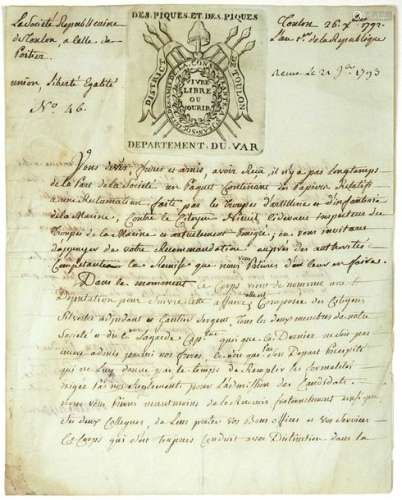 La Société Républicaine
de Toulon, à celle de
Poitiers
union, Liberté Egalité
N.º 46.
DES PIQUES ET DES PIQUES
DISTRICT DE TOULON
VIVRE
LIBRE
OU
MOURIR
DEPARTEMENT DU VAR
Toulon 26. Xbre 1792
L'an 1er de la République
Recue Le 21 Jer 1793
Vous devez, freres et amis, avoir Reçu, il n'y a pas longtemps
de la Part de la Société, un Paquet Contenant des Papiers Relatifs
a une Reclamation faite par les Troupes d'artillerie et d'infanterie
de la Marine, Contre le Citoyen
Troupes de la Marine et actuellement Emigré; en vous invitant
d'appuyer de votre Recommandation auprès des authorités
Compétentes la Remise que nous vous Prions d'en faire.
Dans le moment ce Corps vient de nommer une
Députation pour suivre cette affaire, Composée des Citoyens
Silvestre adjudant et Cantin Sergent, Tous les deux membres de notre
Société et du Cen Lagarde Capne quoi que ce Dernier ne soit pas
encore admis parmi nos freres, le peu que son Depart précipité
qui ne Luy donne pas le temps de Remplir les formalités
exigées par nos Reglements pour l'admission des Candidats.
Nous vous Prions neantmoins de le Recevoir fraternellement ainsi que
ses deux Collegues, de Leur preter vos bons offices et vos Services
Ce Corps qui s'est toujours Conduit avec Distinction dans la